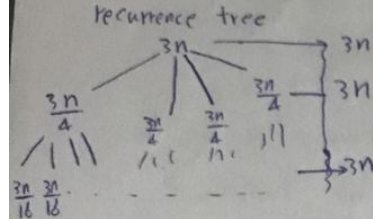 recurrence tree
3n 3n
3n/4 3n/4 3n/4 3n/4 3n
3n/16 3n/16 . - - - - - 3n